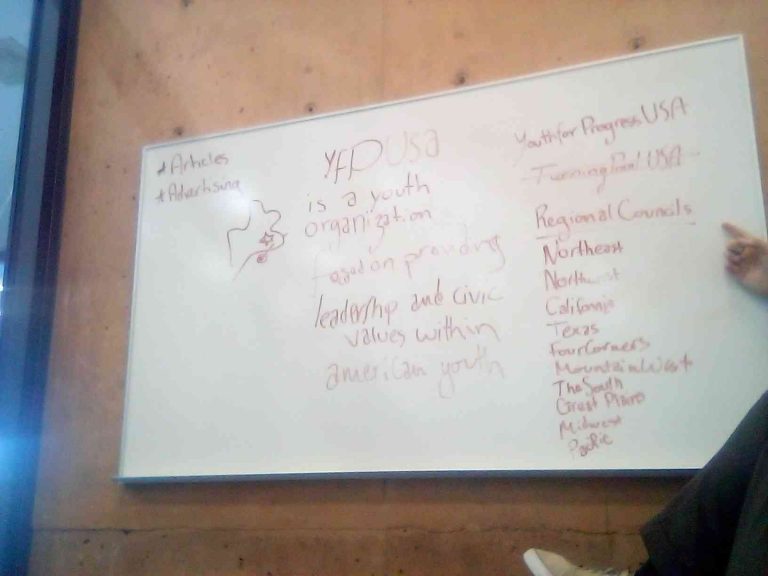 * Articles
* Advertising
YFPUSa
is a youth
organization
focused on providing
leadership and civic
values within
american youth
Youth for Progress USA
- Turning Point USA -
Regional Councils
Northeast
Northwest
California
Texas
Four Corners
Mountain West
The South
Great Plains
Midwest
Pacific